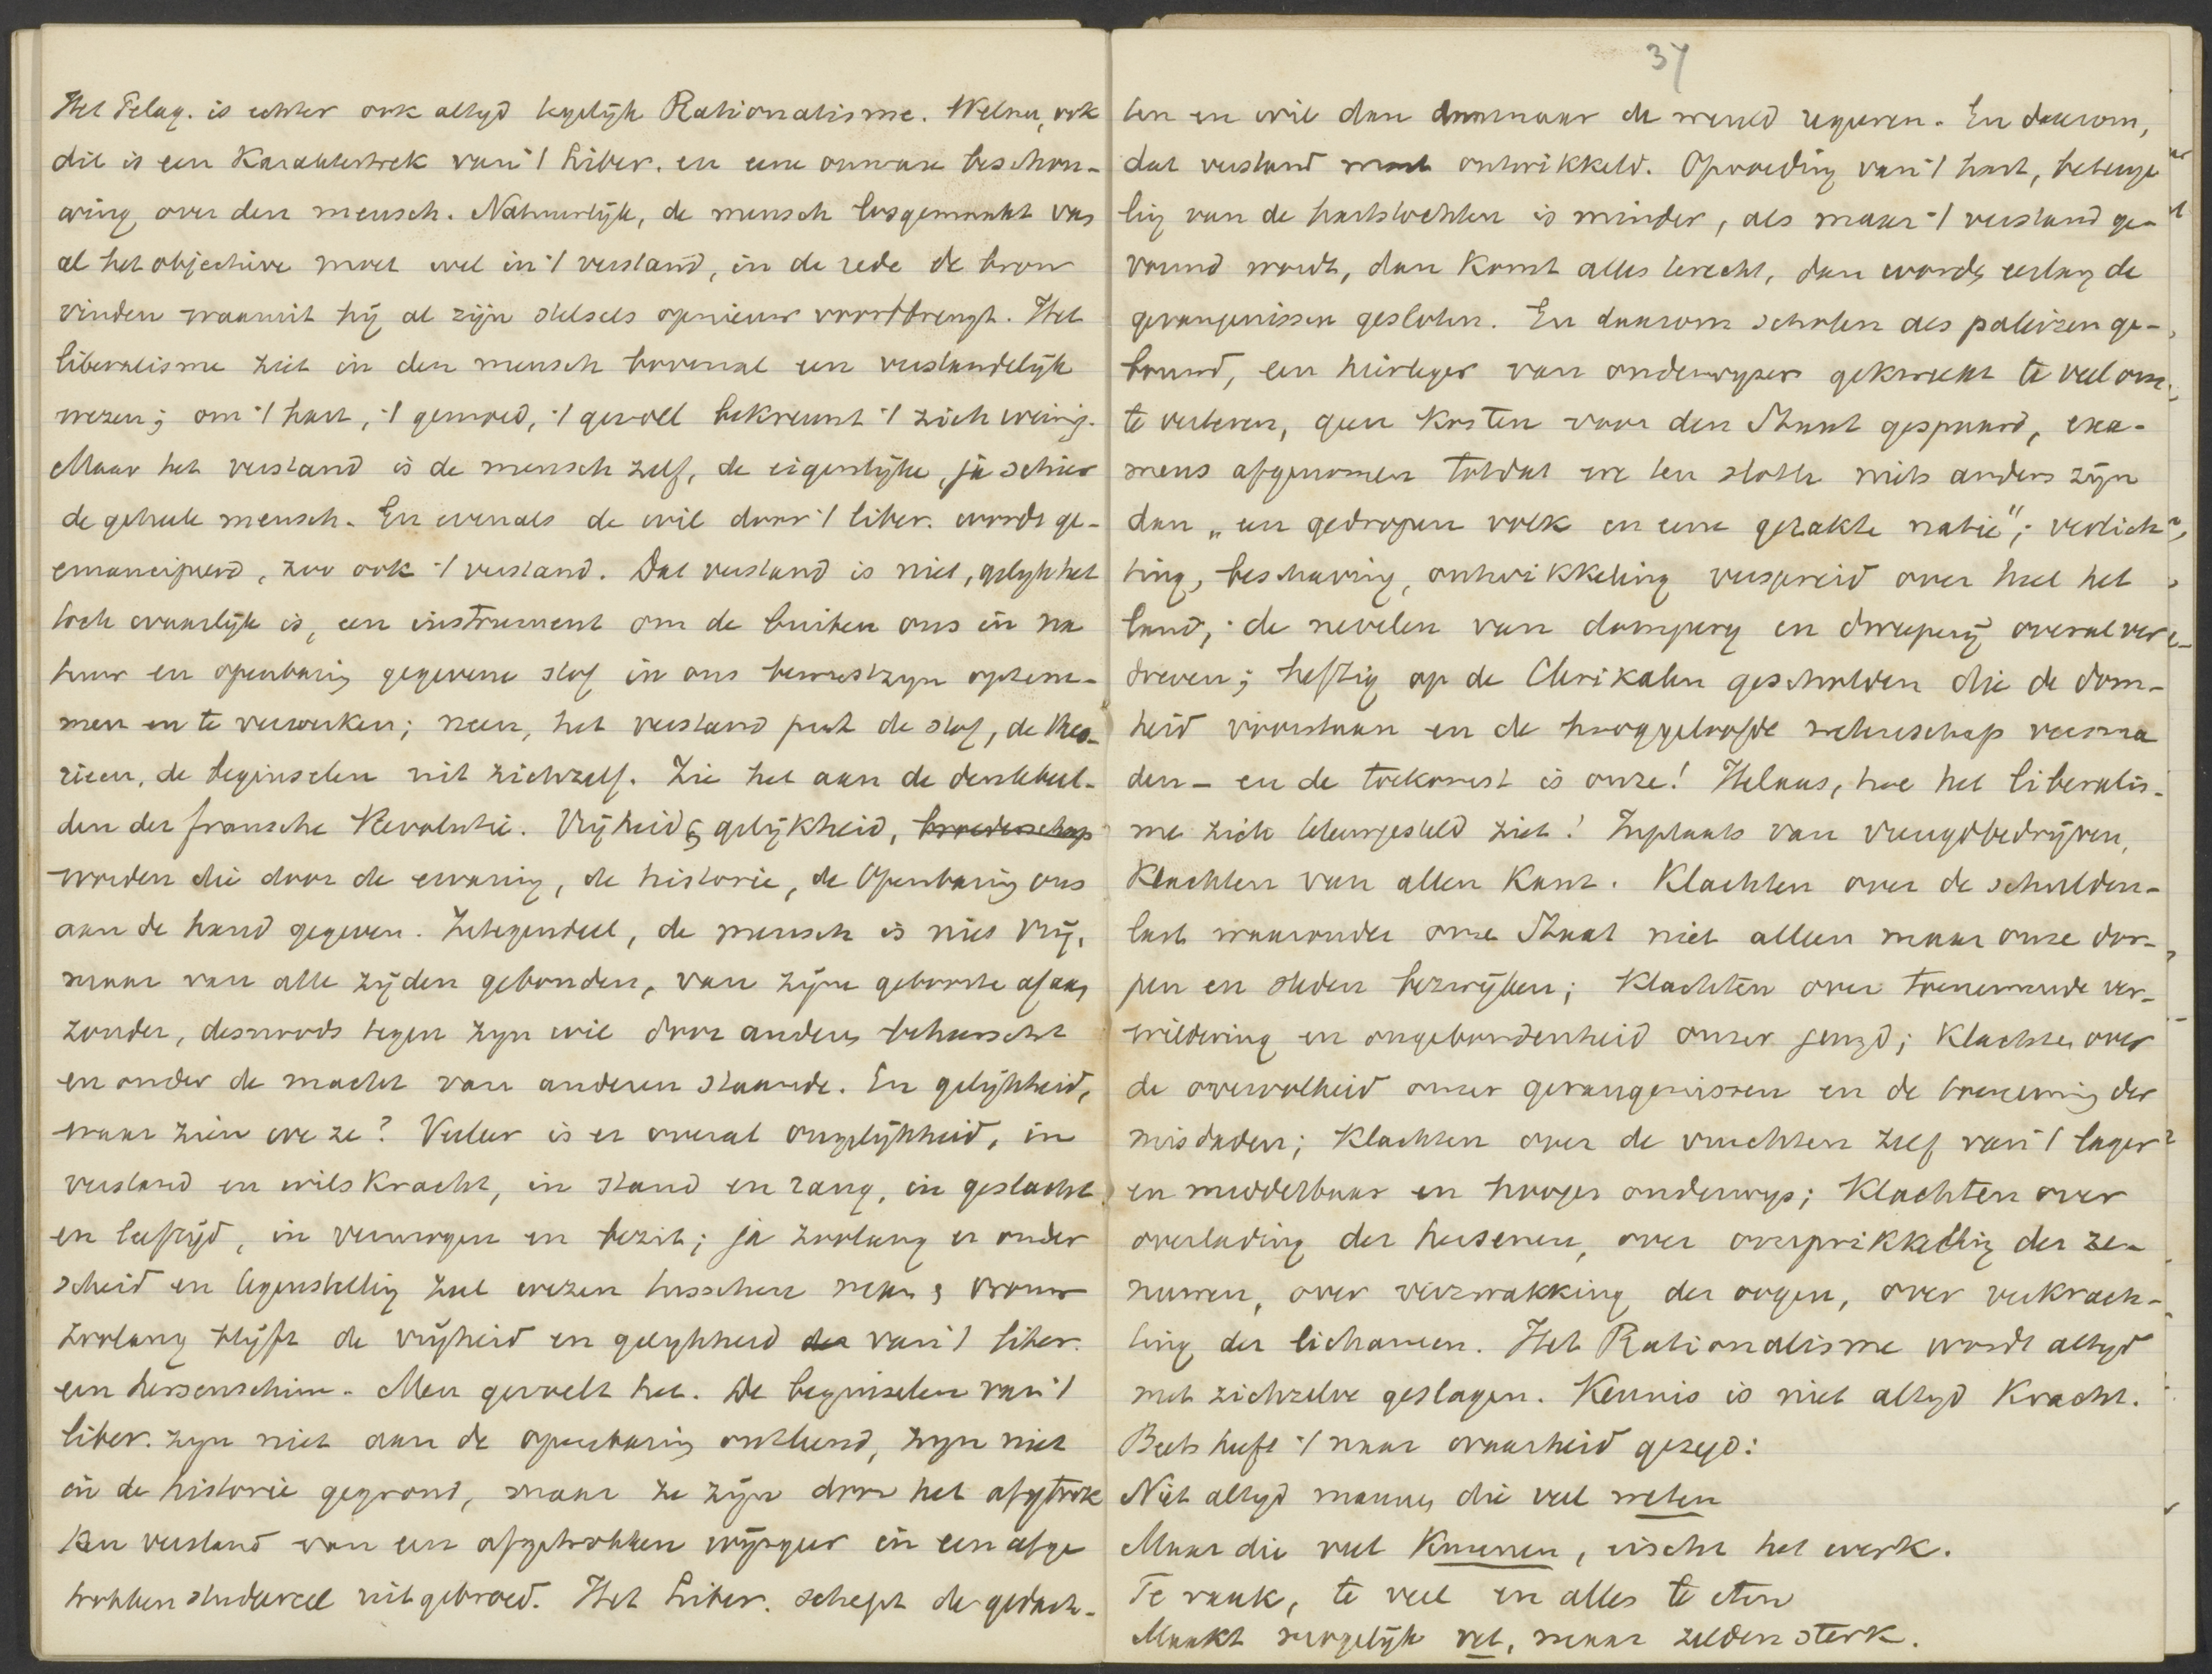 Het Pelag. is echter ook altyd tegelijk Rationalisme. Welnu, ook
dit is een Karaktertrek van 't Liber. en eene onware beschou-
wing over den mensch. Natuurlijk, de mensch losgemaakt van
al het objectieve moet wel in 't verstand, in de rede de bron
vinden waaruit hij al zijn stelsels opnieuw voortbrengt. Het
liberalisme ziet in den mensch bovenal een verstandelijk
wezen; om 't hart, 't gemoed, 't gevoel bekreunt 't zich weinig.
Maar het verstand is de mensch zelf, de eigenlijke, ja schier
de geheele mensch. En evenals de wil door 't liber. wordt ge-
emancipeerd, zoo ook 't verstand. Dat verstand is niet, gelyk het
toch waarlijk is, een instrument om de buiten ons in na
tuur en openbaring gegevene stof in ons bewustzyn optene-
men en te verwerken; neen, het verstand put de stof, de theo-
rieen, de beginselen uit zichzelf. Zie het aan de denkbeel-
den der fransche Revolutie. Vrijheid & gelijkheid, broederschap
worden die door de ervaring, de historie, de Openbaring ons
aan de hand gegeven. Integendeel, de mensch is niet vrij,
maar van alle zijden gebonden, van zijne geboorte afaan
zonder, desnoods tegen zyn wil door anderen beheerscht
en onder de macht van anderen staande. En gelijkheid,
waar zien we ze? Veeleer is er overal ongelijkheid, in
verstand en wilskracht, in stand en rang, in geslacht
en leeftijd, in vermogen en bezit; ja zoolang er onder
scheid en tegenstelling zal wezen tusschen man & vrouw
zoolang blijft de vrijheid en gelykheid der van 't liber.
een hersenschim. Men gevoelt het. De beginselen van 't
liber. zyn niet aan de openbaring ontleend, zyn niet
in de historie gegrond, maar ze zijn door het afgetrok
ken verstand van een afgetrokken wijsgeer in een afge
trokken studeercel uitgebroed. Het Liber. schept de gedach-
37
ten en wil dan daarnaar de wereld regeeren. En daarom,
dat verstand moet ontwikkeld. Opvoeding van 't hart, beteuge
ling van de hartstochten is minder, als maar 't verstand ge-
vormd wordt, dan komt alles terecht, dan worden eerlang de
gevangenissen gesloten. En daarom scholen als paleizen ge-
bouwd, een heirleger van onderwyzers gekweekt te veel om
te verteren, geen Kosten voor den Staat gespaard, exa-
mens afgenomen totdat we ten slotte niets anders zijn
dan „een gedropen volk en eene gezakte natie"; verlich
ting, beschaving, ontwikkeling verspreid over heel het
land, de nevelen van dompery en dweeperij overal ver
dreven; heftig op de Clerikalen gescholden die de dom-
heid voorstaan en de hooggeloofde wetenschap versma
den - en de toekomst is onze! Helaas, hoe het liberalis-
me zich teleurgesteld ziet! Inplaats van vreugdbedrijven,
Klachten van allen Kant. Klachten over de schulden-
last waaronder onze Staat niet alleen maar onze dor-
pen en steden bezwijken; Klachten over toenemende ver-
wildering en ongebondenheid onzer jeugd; Klachten over
de overvolheid onzer gevangenissen en de toeneming der
misdaden; Klachten over de vruchten zelf van 't lager
en middelbaar en hooger onderwys; Klachten over
overlading der hersenen, over overprikkeling der ze-
nuwen, over verzwakking der oogen, over verkrach-
ting der lichamen. Het Rationalisme wordt altyd
met zichzelve geslagen. Kennis is niet altyd Kracht.
Beets heeft 't naar waarheid gezegd:
Niet altyd mannen die veel weten
Maar die veel Kunnen, eischt het werk.
Te vaak, te veel en alles te eten
Maakt mogelijk vet, maar zelden sterk.